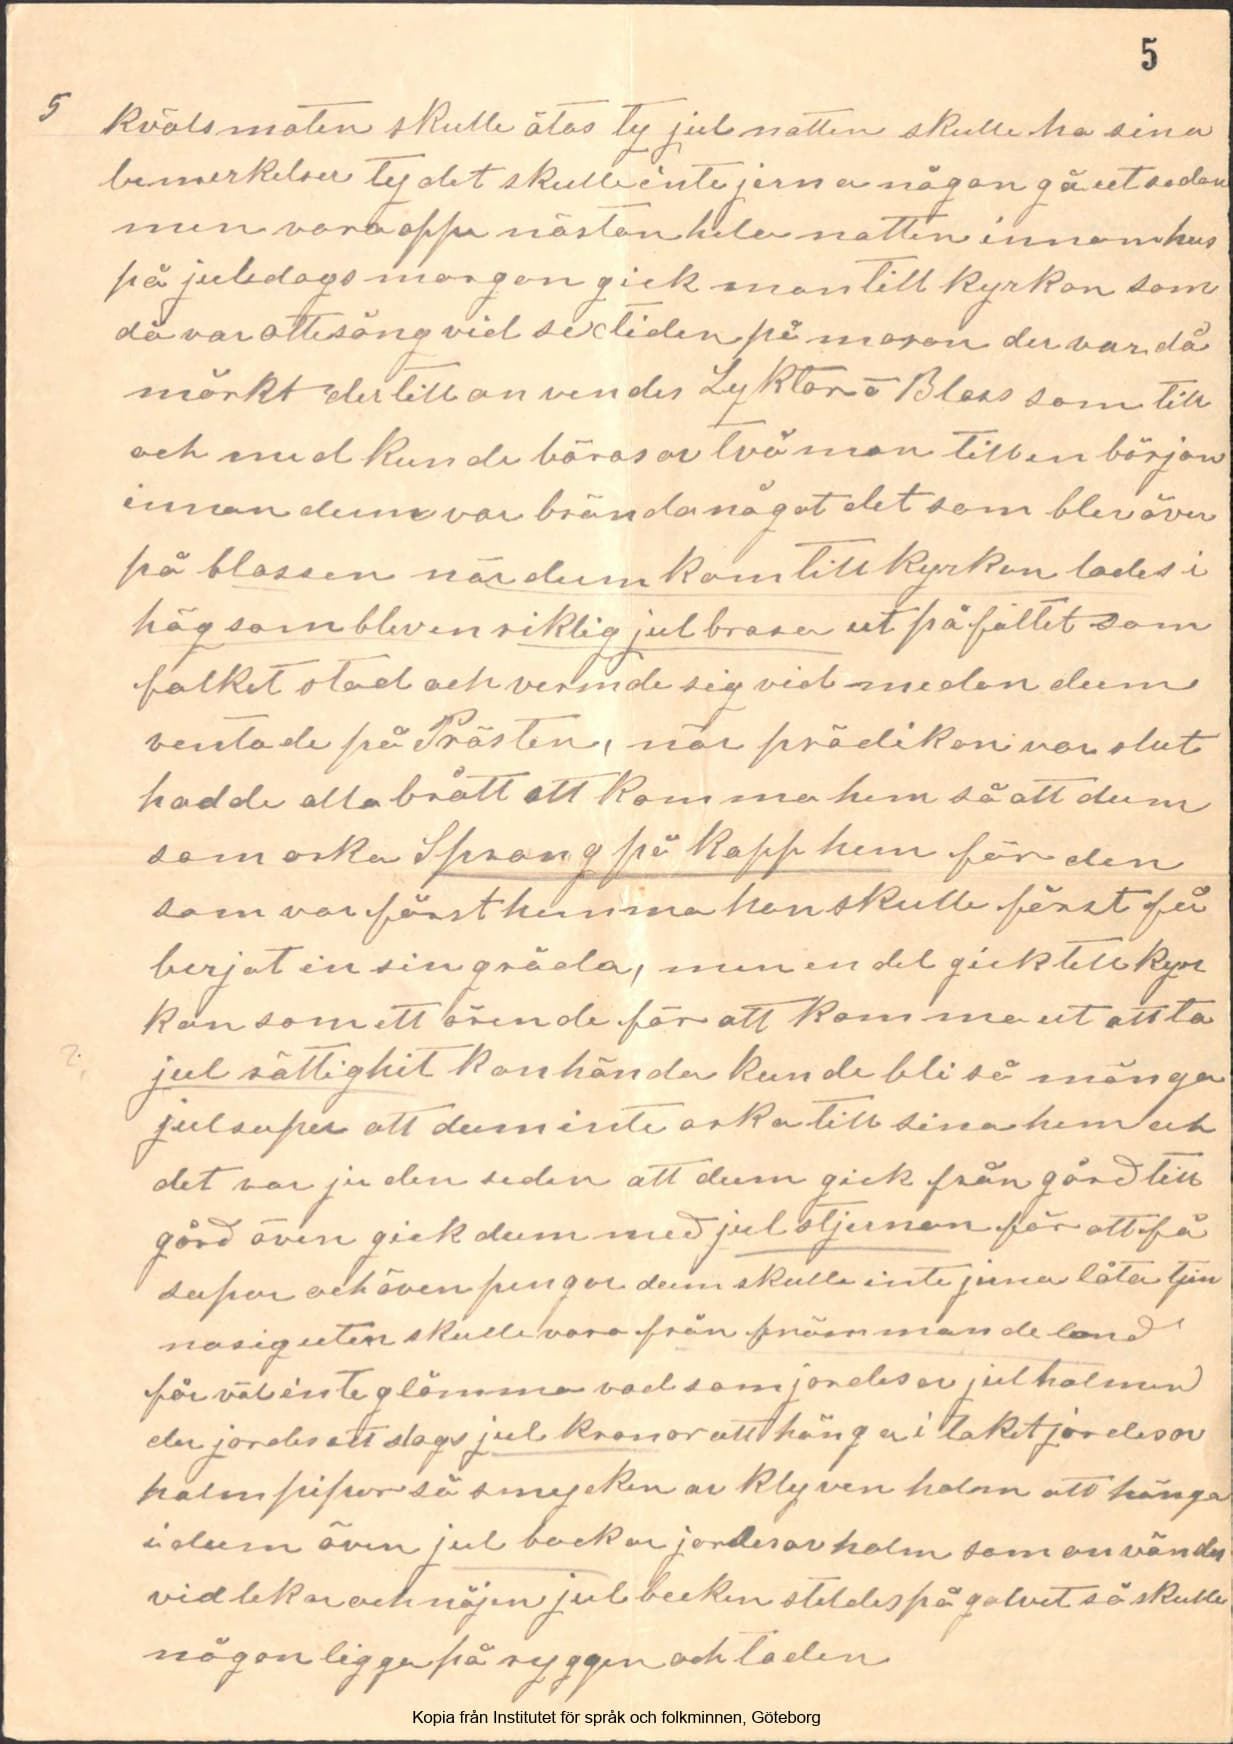 5
5
kvälsmaten skulle ätas ty jul natten skulle ha sina
bemerkelser ty det skulle inte jerna någon gå ut sedan
men vara oppe nästan hela natten innom hus
på juledags morgon giek man till kyrkan som
då var ottesång vid sextiden på moron der var då
mörkt der till anvendes Lyktor o Blass som till
och med kunde bäras av två man till en början
innan deum var brända något det som blev över
på blassen när deum kom till kyrkan lades i
hög som blev en riklig julbrasa ut på fältet som
folket stod och vermde sig vid medan deum
ventade på Prästen, när prädikan var slut
hadde alla brått att komma hem så att deum
som orka Sprang på kapp hem för den
som var först hemma han skulle först få
berjat in sin gröda, men en del giek till kyr
kan som ett ärende för att komma ut att ta
?
jul rättighit kanhända kunde bli så många
julsuper att deum inte orka till sina hem och
det var ju den seden att deum giek från gård till
gård även giek deum med jul stjernan för att få
supar och även pengar deum skulle inte jerna låta tjän
na sig uten skulle vara från främmande land
får väl inte glömma vad som jordes av julhalmen
der jordes ett slags jul kronor att hänga i taket jordes av
halm pipor så smycken av klyven halm att hänga
i deum även jul bockar jordes av halm som användes
vid lekar och nöjen jul bocken steldes på golvet så skulle
någon ligga på ryggen och taden
Kopia från Institutet för språk och folkminnen, Göteborg